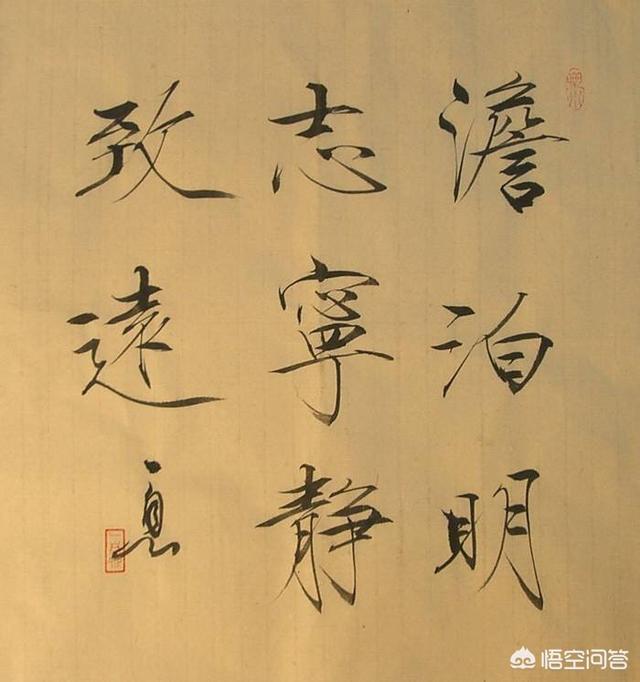 澹泊明
志寧靜
致遠
悟空问答